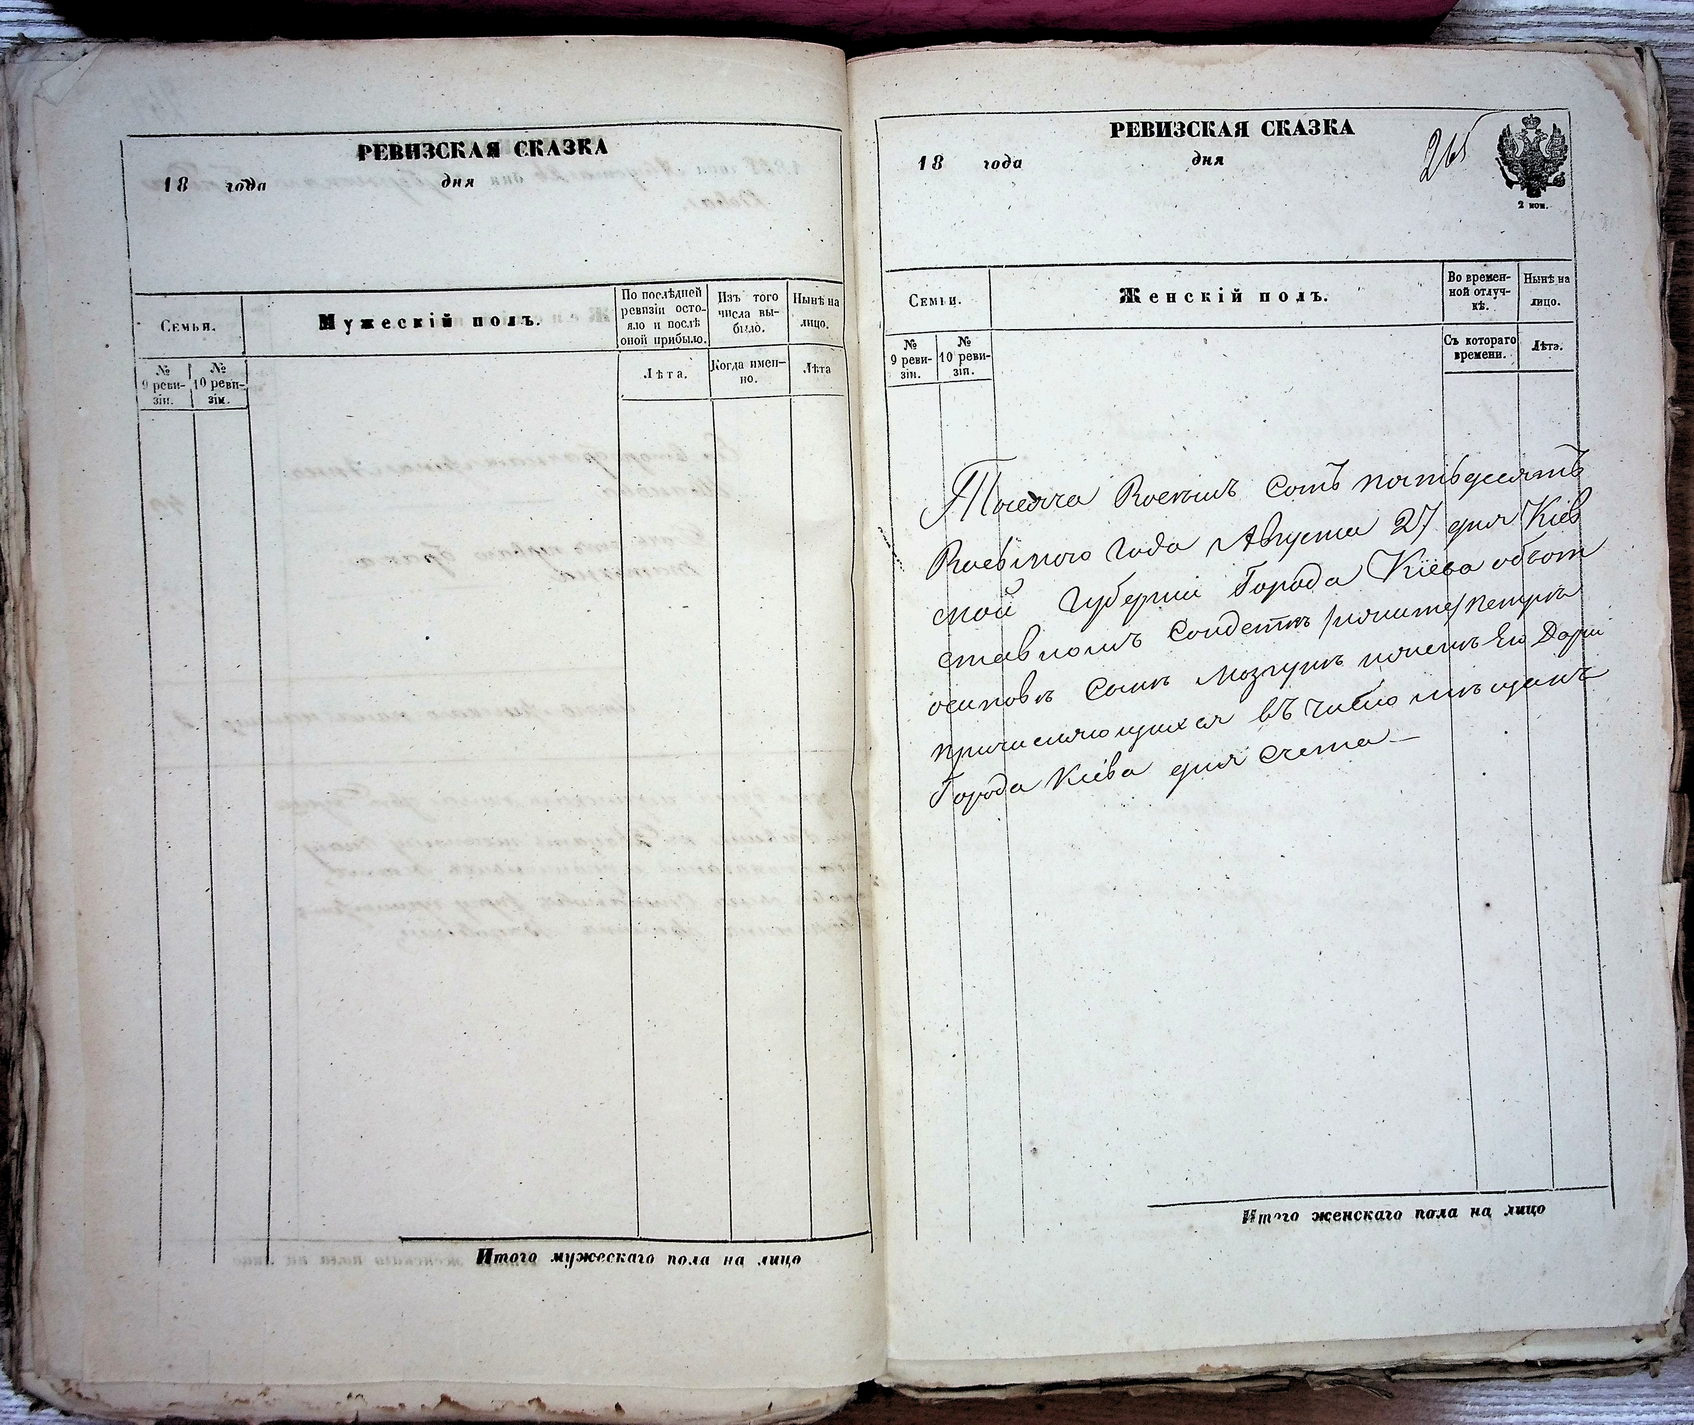 РЕВИЗСКАЯ СКАЗКА
18 года дня
Семьи.
Мужескій полъ.
По послѣдней
ревизіи осто-
яло и послѣ
оной прибыло.
Изъ того
числа вы-
было.
Нынѣ на
лицо.
№
9 реви-
зіи.
№
10 реви-
зіи.
Лѣта.
Когда имен-
но.
Лѣта
Итого мужескаго пола на лицо
РЕВИЗСКАЯ СКАЗКА
265
18 года дня
2 коп.
Семьи.
Женскій полъ.
Во времен-
ной отлуч-
кѣ.
Нынѣ на
лицо.
№
9 реви-
зіи.
№
10 реви-
зіи.
Съ котораго
времени.
Лѣта.
Тысяча Восемь сотъ пятьдесятъ
Восьмого года Августа 27 дня Кіев
ской Губерніи Города Кіева объот
ставномъ Солдатѣ Петрѣ
осиповѣ Сынѣ женѣ Его Дарьи
причисляющихся въ число мѣщанъ
Города Кіева для счета —
Итого женскаго пола на лицо